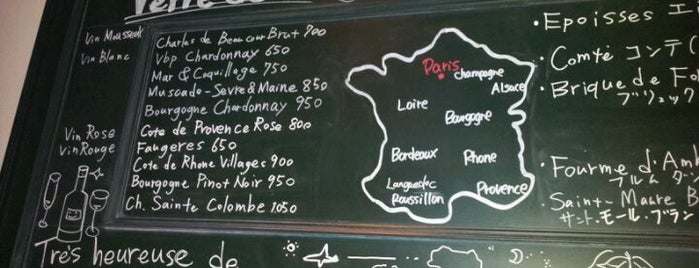 Vin Mousseux
Vin Blanc
Charles de Beaucour Brut 700
Vbp Chardonnay 650
Mar & Coquillage 750
Muscade-Sevre & Maine 850
Bourgogne Chardonnay 950
Vin Rose
Vin Rouge
Cote de Provence Rose 800
Faugeres 650
Cote de Rhone Villages 900
Bourgogne Pinot Noir 950
Ch. Sainte Colombe 1050
Paris
Champagne
Alsace
Loire
Bourgogne
Bordeaux
Rhone
Languedoc
Roussillon
Provence
・Epoisses エ
・Comté コンテ
・Brique de
ブリック
・Fourme d'Amb
フルム ダン
・Saint-Maure B
サント・モール・ブラン
Très heureuse de